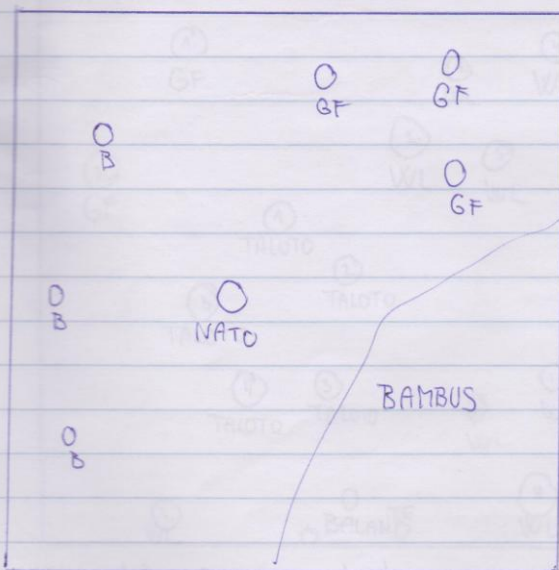 GF
GF
B
GF
B
NATO
BAMBUS
B